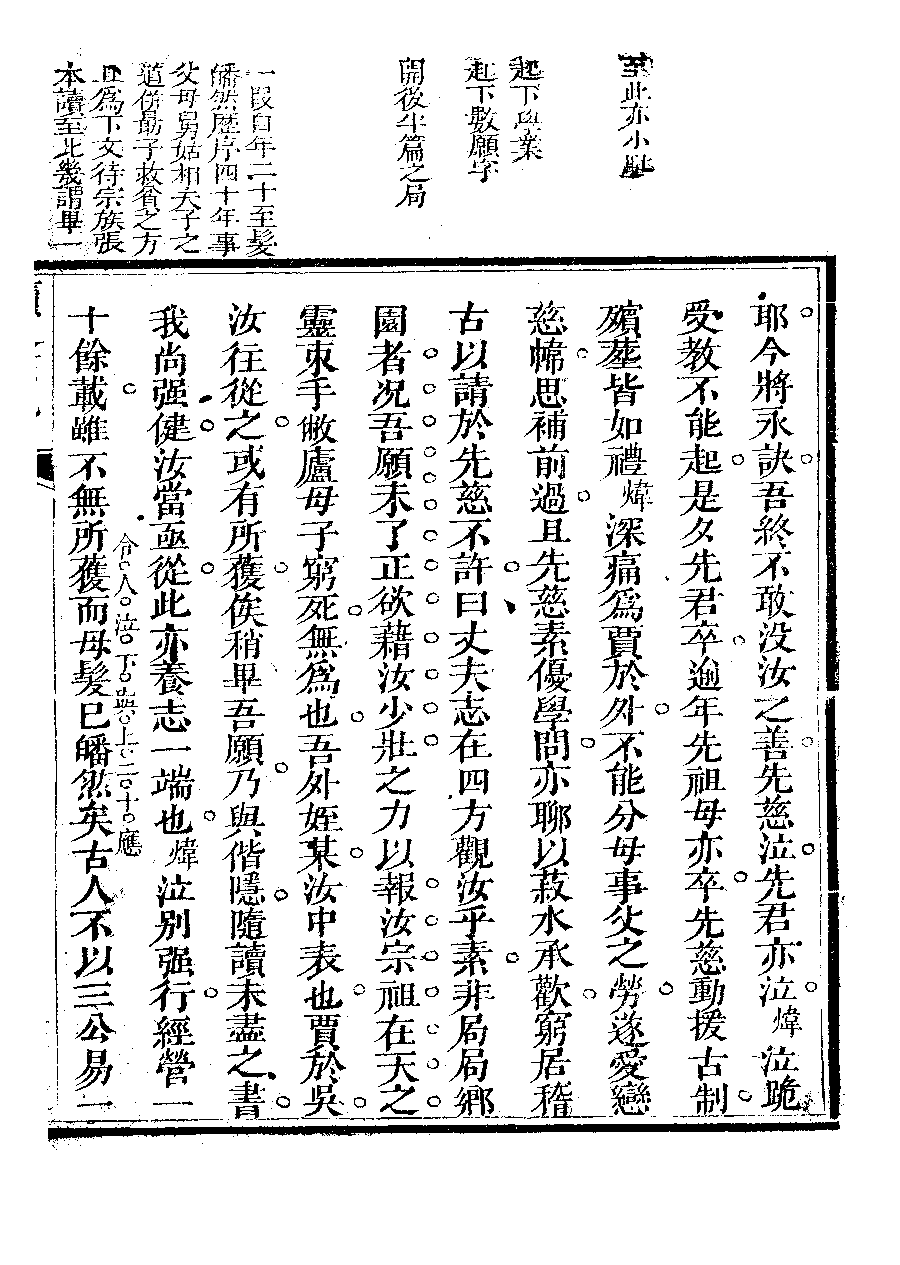 至此亦小壯
起下與業
起下數願字
開後半篇之局
一段自年二十至髮
皤然歷序四十年事
父母舅姑相夫子之
道併勗子救貧之方
且爲下文待宗族張
本讀至此幾謂畢一
耶今將永訣吾終不敢没汝之善先慈泣先君亦泣煒泣跪
受教不能起是夕先君卒逾年先祖母亦卒先慈動援古制
殯塟皆如禮煒深痛爲賈於外不能分母事父之勞遂愛戀
慈幃思補前過且先慈素優學問亦聊以菽水承歡窮居稽
古以請於先慈不許曰丈夫志在四方觀汝乎素非局局鄉
園者况吾願未了正欲藉汝少壯之力以報汝宗祖在天之
靈束手敝廬母子窮死無爲也吾外姪某汝中表也賈於吳
汝往從之或有所獲俟稍畢吾願乃與偕隱隨讀未盡之書
我尚强健汝當亟從此亦養志一端也煒泣別强行經營一
十餘載雖不無所獲而母髮已皤然矣古人不以三公易一
令人泣下與上二十應